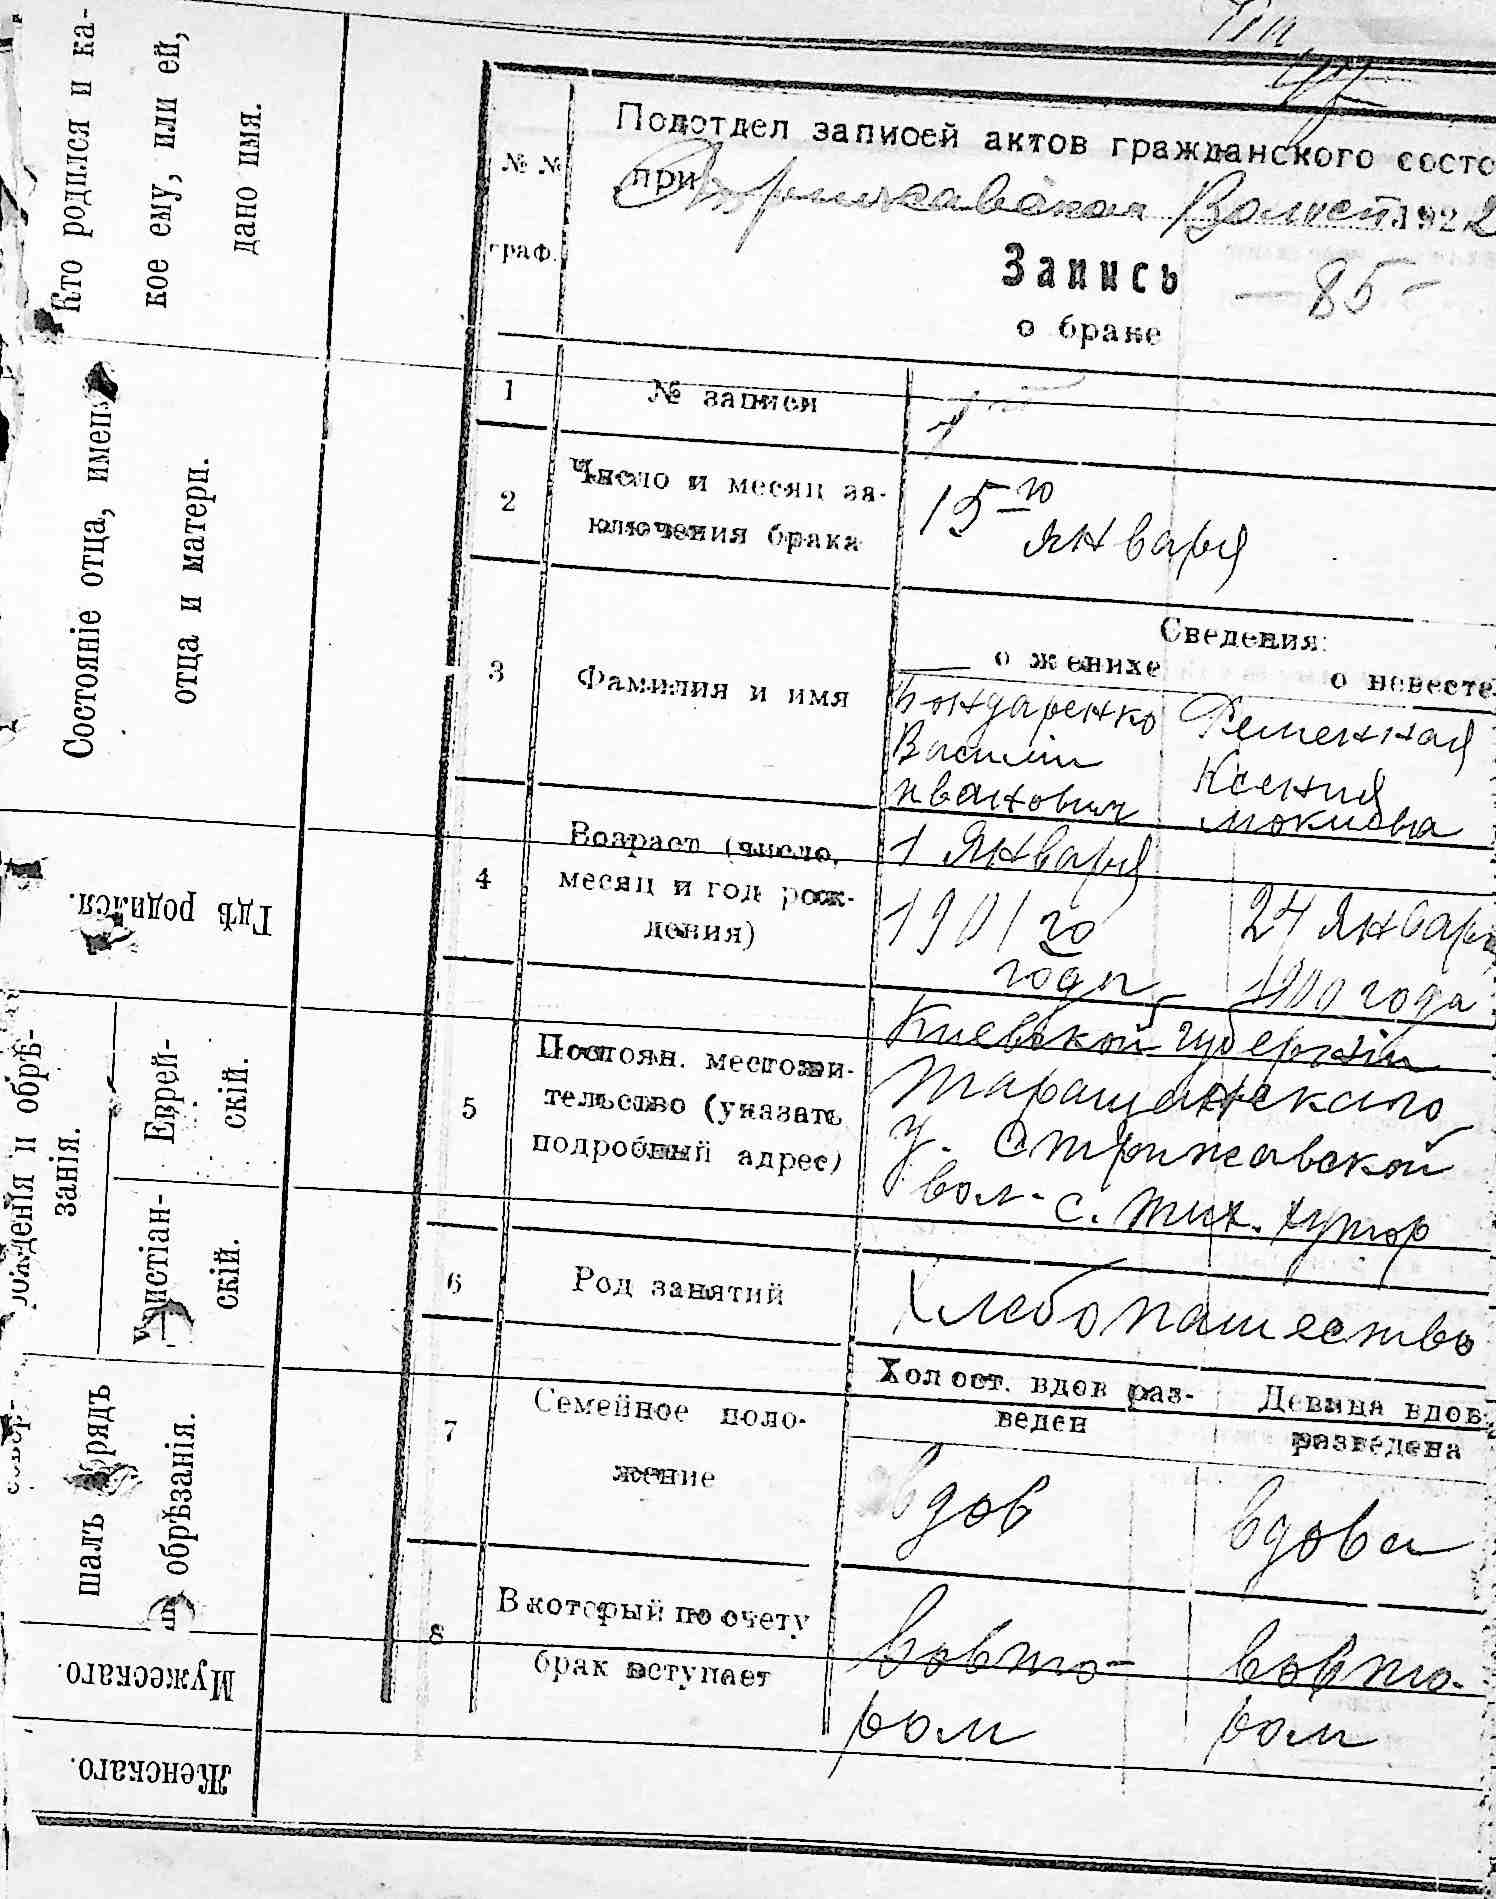 Кто родился и ка-
кое ему, или ей,
дано имя.
Состояніе отца, имена
отца и матери.
Гдѣ родился.
рожденія и обрѣ-
занія.
Еврей-
скій.
Христіан-
скій.
шалъ обрядъ
обрѣзанія.
Мужескаго.
Женскаго.
Подотдел записей актов гражданского состо
№ №
граф.
при Стрижавская Волост 1922
Запись — 85 —
о браке
1 № записи 1
2 Число и месяц за-
ключения брака
15го
января
3 Фамилия и имя
Сведения:
о женихе
о невесте
Бондаренко
Василій
Иванович
Ременная
Ксения
Мокиевна
4 Возраст (число,
месяц и год рож-
дения)
1 Января
1901 го
года
24 Января
1900 года
5 Постоян. местожи-
тельство (указать
подробный адрес)
Киевской губерніи
Таращанскаго
у. Стрижавской
вол. с. Тих. хутор
6 Род занятий Хлебопашество
7 Семейное поло-
жение
Холост. вдов раз-
веден
Девица вдов.
разведена
вдов
вдова
8 В который по счету
брак вступает
вовто-
ром
вовто-
ром